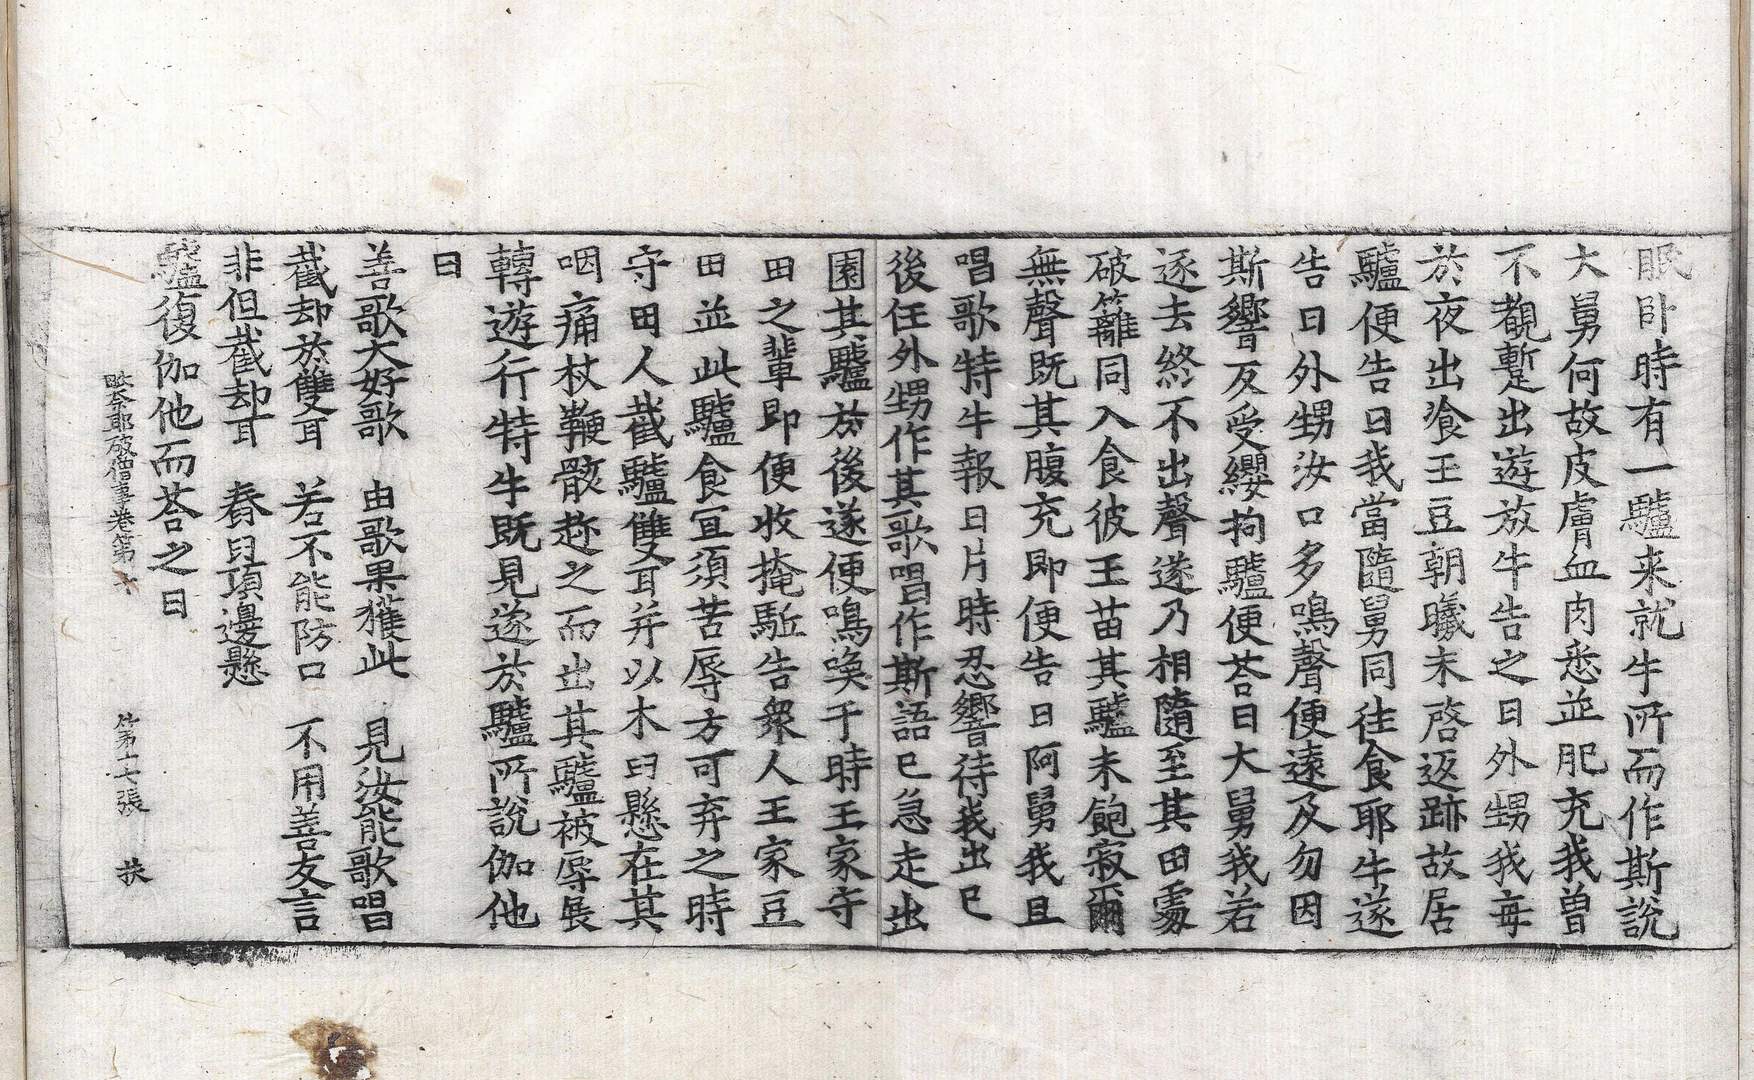 眠卧時有一驢来就牛所而作斯說
大舅何故皮膚血肉悉並肥充我曾
不覩蹔出遊放牛告之曰外甥我每
於夜出飡王豆朝曦未啓返跡故居
驢便告曰我當隨舅同往食耶牛遂
告曰外甥汝口多鳴聲便遠及勿因
斯響反受纓拘驢便荅曰大舅我若
逐去終不出聲遂乃相隨至其田處
破籬同入食彼王苗其驢未飽寂爾
無聲既其腹充即便告曰阿舅我且
唱歌特牛報曰片時忍響待我出已
後任外甥作其歌唱作斯語已急走出
園其驢於後遂便鳴喚于時王家守
田之輩即便收掩駈告衆人王家豆
田並此驢食宜須苦辱方可弃之時
守田人截驢雙耳并以木臼懸在其
咽痛杖鞭骸趂之而出其驢被辱展
轉遊行特牛既見遂於驢所說伽他
曰
善歌大好歌　由歌果獲此　見汝能歌唱
截却於雙耳　若不能防口　不用善友言
非但截却耳　舂臼項邊懸
驢復伽他而荅之曰
毗奈耶破僧事卷第六　第十七張　扶